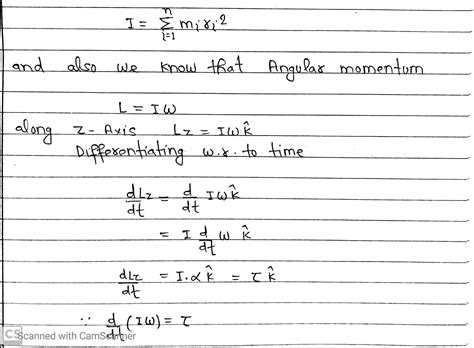 I = Σ mᵢ rᵢ² (i=1 to n)
and also we know that Angular momentum
L = Iω
along z-Axis Lz = Iω k̂
Differentiating w.r. to time
dLz/dt = d/dt Iω k̂
= I d/dt ω k̂
dLz/dt = I.α k̂ = τ k̂
∵ d/dt (Iω) = τ
CS Scanned with CamScanner